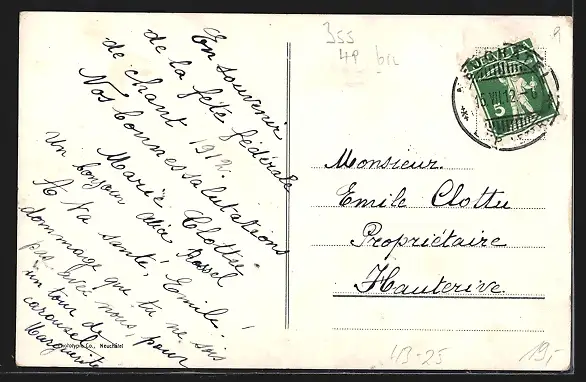 En souvenir
de la fête fédérale
de chant 1912.
Nos bonnes salutations
Marie Clottu
Un bonjour Alice Rossel
A ta santé, Emile!
dommage que tu ne sois
pas avec nous, pour
un tour de
carousel
Marguerite
Co., Neuchâtel
355
4P bn
5
16 VII 12
Monsieur
Emile Clottu
Propriétaire
Hauterive.
413-25
19,-